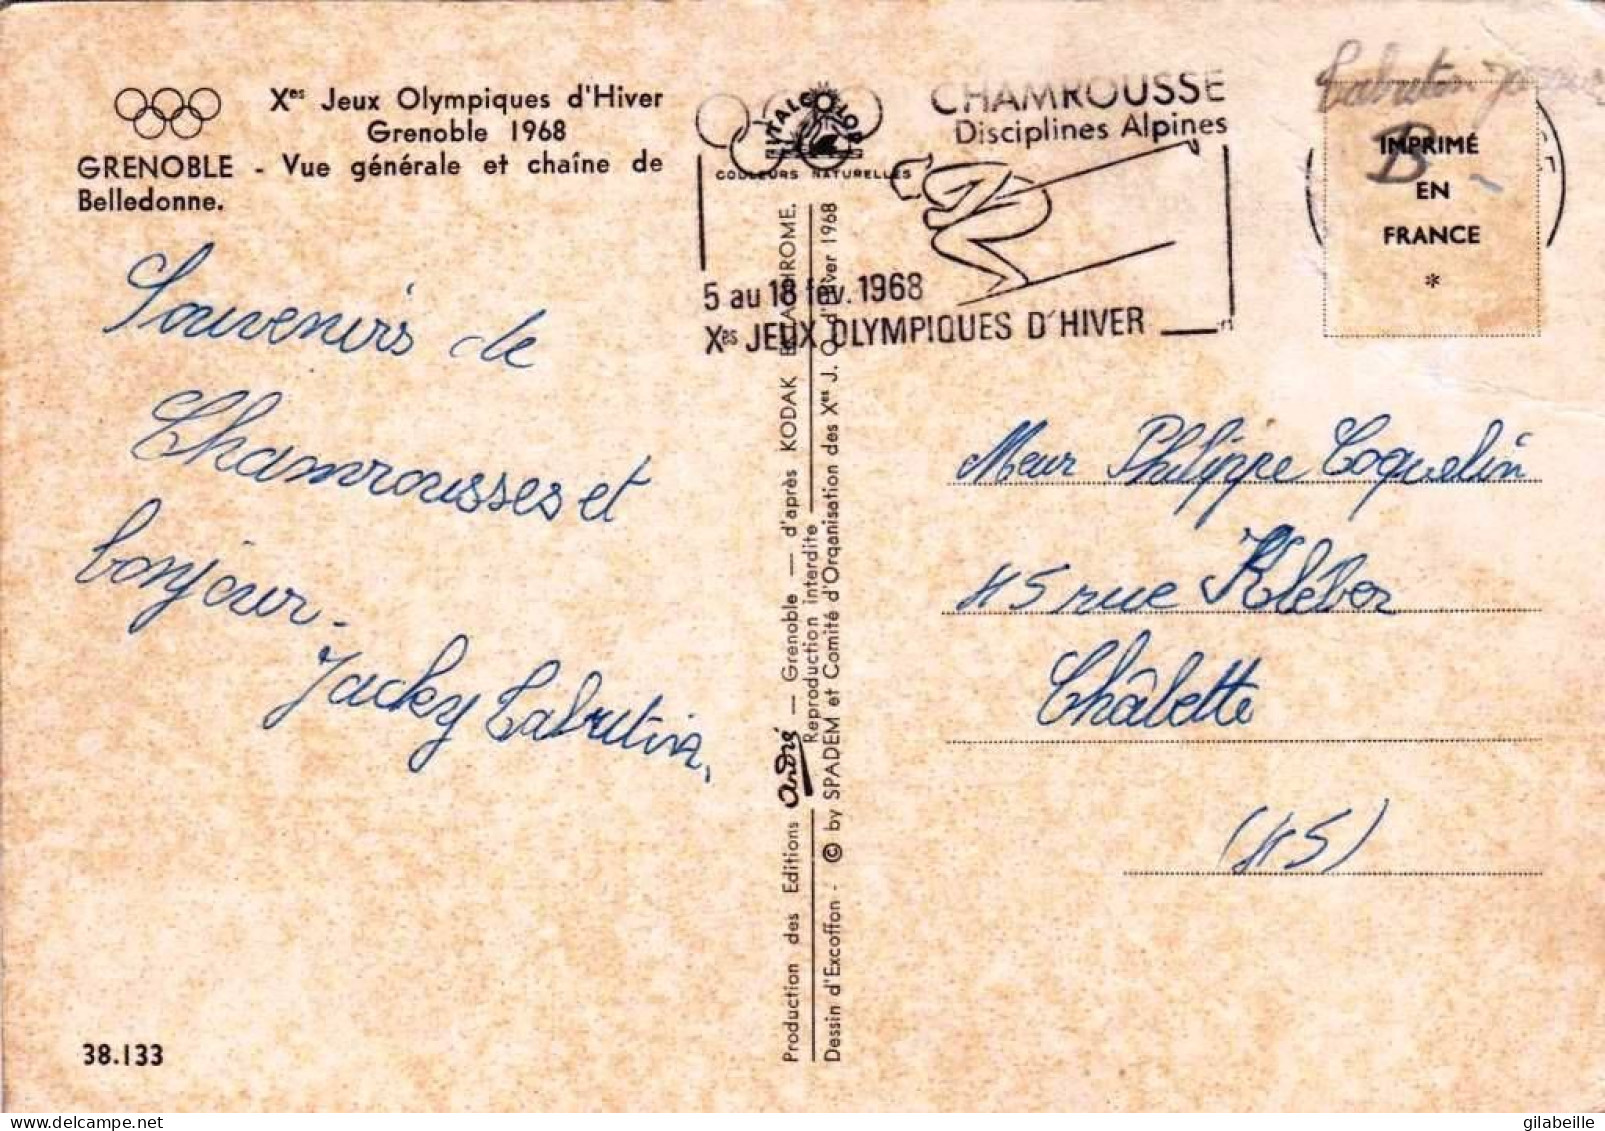 Xes Jeux Olympiques d'Hiver
Grenoble 1968
GRENOBLE - Vue générale et chaîne de
Belledonne.
VITALCOLOR
COULEURS NATURELLES
CHAMROUSSE
Disciplines Alpines
5 au 18 fév. 1968
Xes JEUX OLYMPIQUES D'HIVER
B
IMPRIMÉ
EN
FRANCE
*
Souvenirs de
Chamrousses et
bonjour.
Jacky Labrutin.
Production des Editions André — Grenoble — d'après KODAK EKTACHROME.
Reproduction interdite
Dessin d'Excoffon - © by SPADEM et Comité d'Organisation des Xes J. O. d'Hiver 1968
Meur Philippe Coquelin
45 rue Kléber
Châlette
(45)
38.133
gilabeille